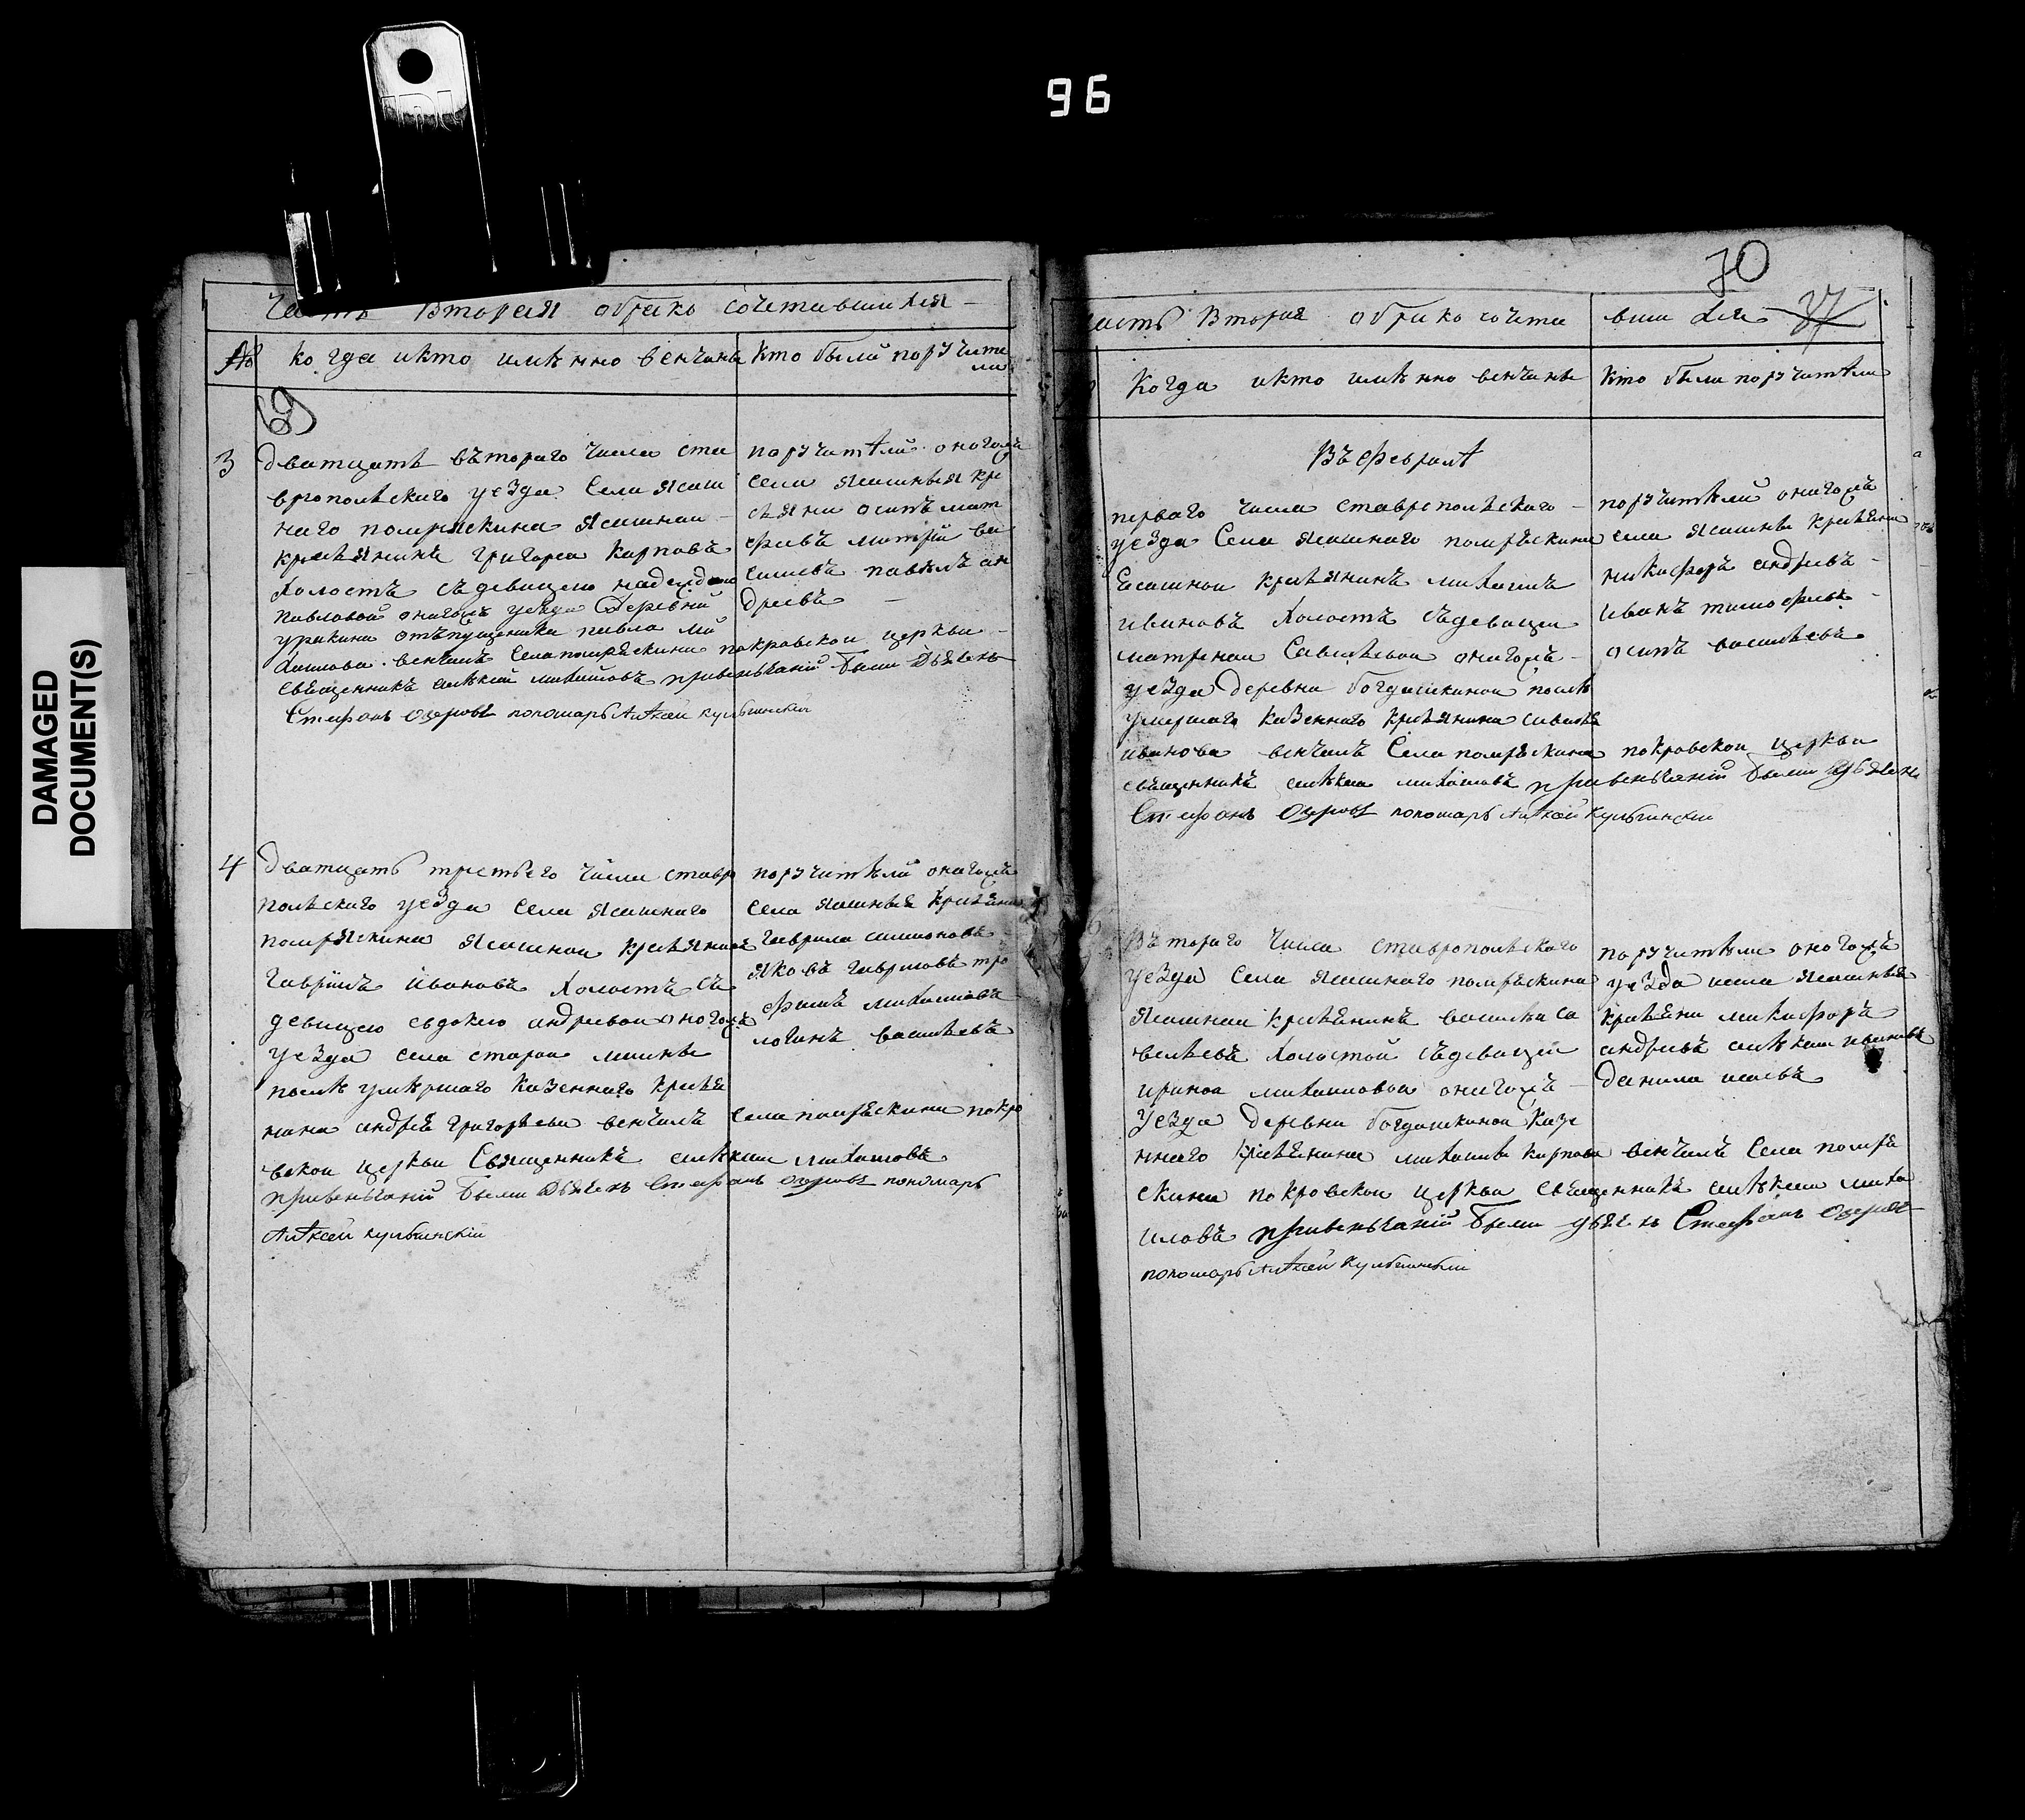 96
DAMAGED
DOCUMENT(S)
Часть Вторая обрако сочетавшихся
№ когда икто имѣнно венчаны
Кто были поручите
ли
69
3
дватцать въторого числа ста
вропольского уезда Села Ясаш
наго помряскина Ясашнои
кресьянинъ григореи карповъ
холостъ съдевицею надеждою
павловой оногожъ уезда Деревни
уракина отъпущеника павла ми
хаилова венчалъ Села помряскина покравской церкви
священникъ алѣксѣй михаиловъ привенчаний были Дьячекъ
Стефанъ Озеровъ пономарь Алѣксѣй кульбинский
поручитѣли оногожъ
села ясашныя кре
сьяни осипъ мат
фѣевъ матвѣй ва
силевъ павелъ ан
дреевъ
4
дватцать третьего числа ставро
польского уезда села ясашнаго
помряскина ясашнои кресьянинъ
гаврилъ ивановъ холостъ съ
девицею евдокею андревои оногожъ
уезда села старои маины
послѣ умѣршаго казеннаго кресья
нина андрѣя григорьева венчалъ села помряскина покро
вской церкви Священникъ алѣксѣи михаиловъ
привенчаний были Дьячекъ Стефанъ озеровъ пономарь
Алѣксѣй кульбинский
поручитѣли оногожъ
села ясашныя кресьяни
гаврила симионовъ
яковъ гавриловъ тро
фимъ михаиловъ
логинъ васильевъ
70
часть Вторая обрако сочета
вши хся
37
Когда икто имѣнно венчаны
Кто были поручитѣли
Въ февралѣ
перваго числа ставропольского
уезда Села ясашнаго помряскина
Ясашнои кресьянинъ михаилъ
ивановъ холостъ съдевицеи
матренои Савельевои оногожъ
уезда деревни богдашкинои послѣ
умершаго казеннаго кресьянина савелья
иванова венчалъ Села помряскина покровскои церкви
священникъ алѣксѣи михаиловъ привенчаний были Дьячекъ
Стефанъ Озеровъ пономарь Алѣксѣй кульбинский
поручитѣли оногожъ
села ясашны кресьяни
никифоръ андреевъ
иванъ тимофеевъ
осипъ васильевъ
Въторого числа ставропольского
уезда Села ясашнаго помряскина
ясашнои кресьянинъ василѣи са
вельевъ холостой съдевицеи
ириной михаиловои оногожъ
Уезда деревни богдашкинои казе
ннаго кресьянина михаила карпова венчалъ Села помря
скина покровскои церкви священникъ алѣксѣи миха
иловъ привенчаний были дьячекъ Стефанъ Озеровъ
пономарь Алѣксѣй Кульбинский
поручитѣли оногожъ
уезда исела ясашныя
кресьяни никифоръ
андревъ алѣксѣи ивановъ
данила исаевъ